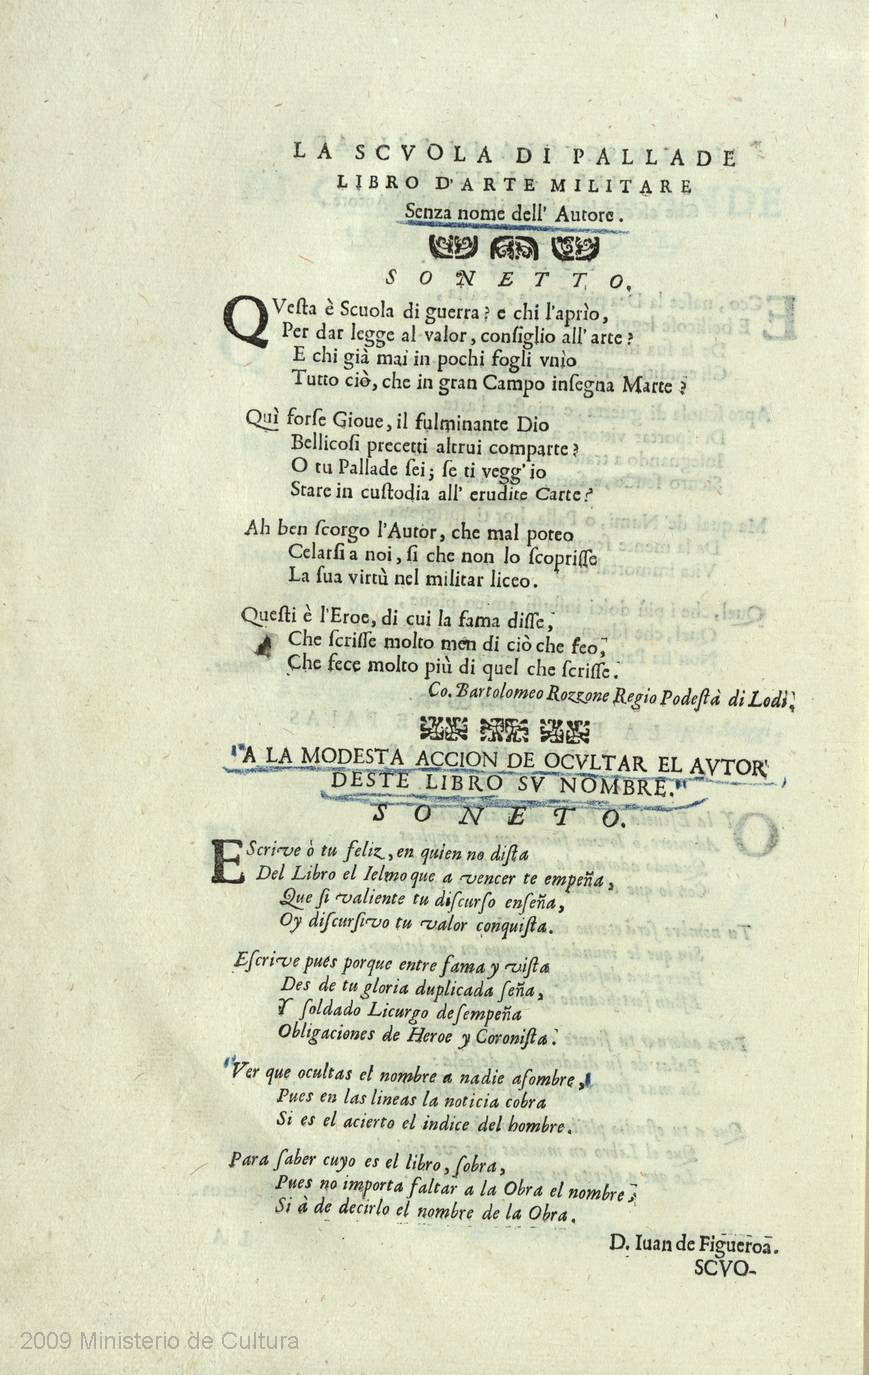 LA SCVOLA DI PALLADE
LIBRO D'ARTE MILITARE
Senza nome dell' Autore.
SONETTO.
QVeſta è Scuola di guerra? e chi l'aprìo,
Per dar legge al valor, conſiglio all' arte?
E chi già mai in pochi fogli vnìo
Tutto ciò, che in gran Campo inſegna Marte?
Quì forſe Gioue, il fulminante Dio
Bellicoſi precetti altrui comparte?
O tu Pallade ſei; ſe ti vegg' io
Stare in cuſtodia all' erudite Carte?
Ah ben ſcorgo l'Autòr, che mal poteo
Celarſi a noi, ſi che non lo ſcopriſſe
La ſua virtù nel militar liceo.
Queſti è l'Eroe, di cui la fama diſſe,
Che ſcriſſe molto men di ciò che feo,
Che fece molto più di quel che ſcriſſe.
Co. Bartolomeo Rozzone Regio Podeſtà di Lodi.
"A LA MODESTA ACCION DE OCVLTAR EL AVTOR
DESTE LIBRO SV NOMBRE."
SONETO.
EScrive ò tu feliz, en quien no diſta
Del Libro el Ielmo que a vencer te empeña,
Que ſi valiente tu diſcurſo enſeña,
Oy diſcurſivo tu valor conquiſta.
Eſcrive pues porque entre fama y viſta
Des de tu gloria duplicada ſeña,
Y ſoldado Licurgo deſempeña
Obligaciones de Heroe y Coroniſta.
"Ver que ocultas el nombre a nadie aſombre,
Pues en las lineas la noticia cobra
Si es el acierto el indice del hombre.
Para ſaber cuyo es el libro, ſobra,
Pues no importa faltar a la Obra el nombre;
Si à de decirlo el nombre de la Obra.
D. Iuan de Figueroa.
SCVO-
2009 Ministerio de Cultura